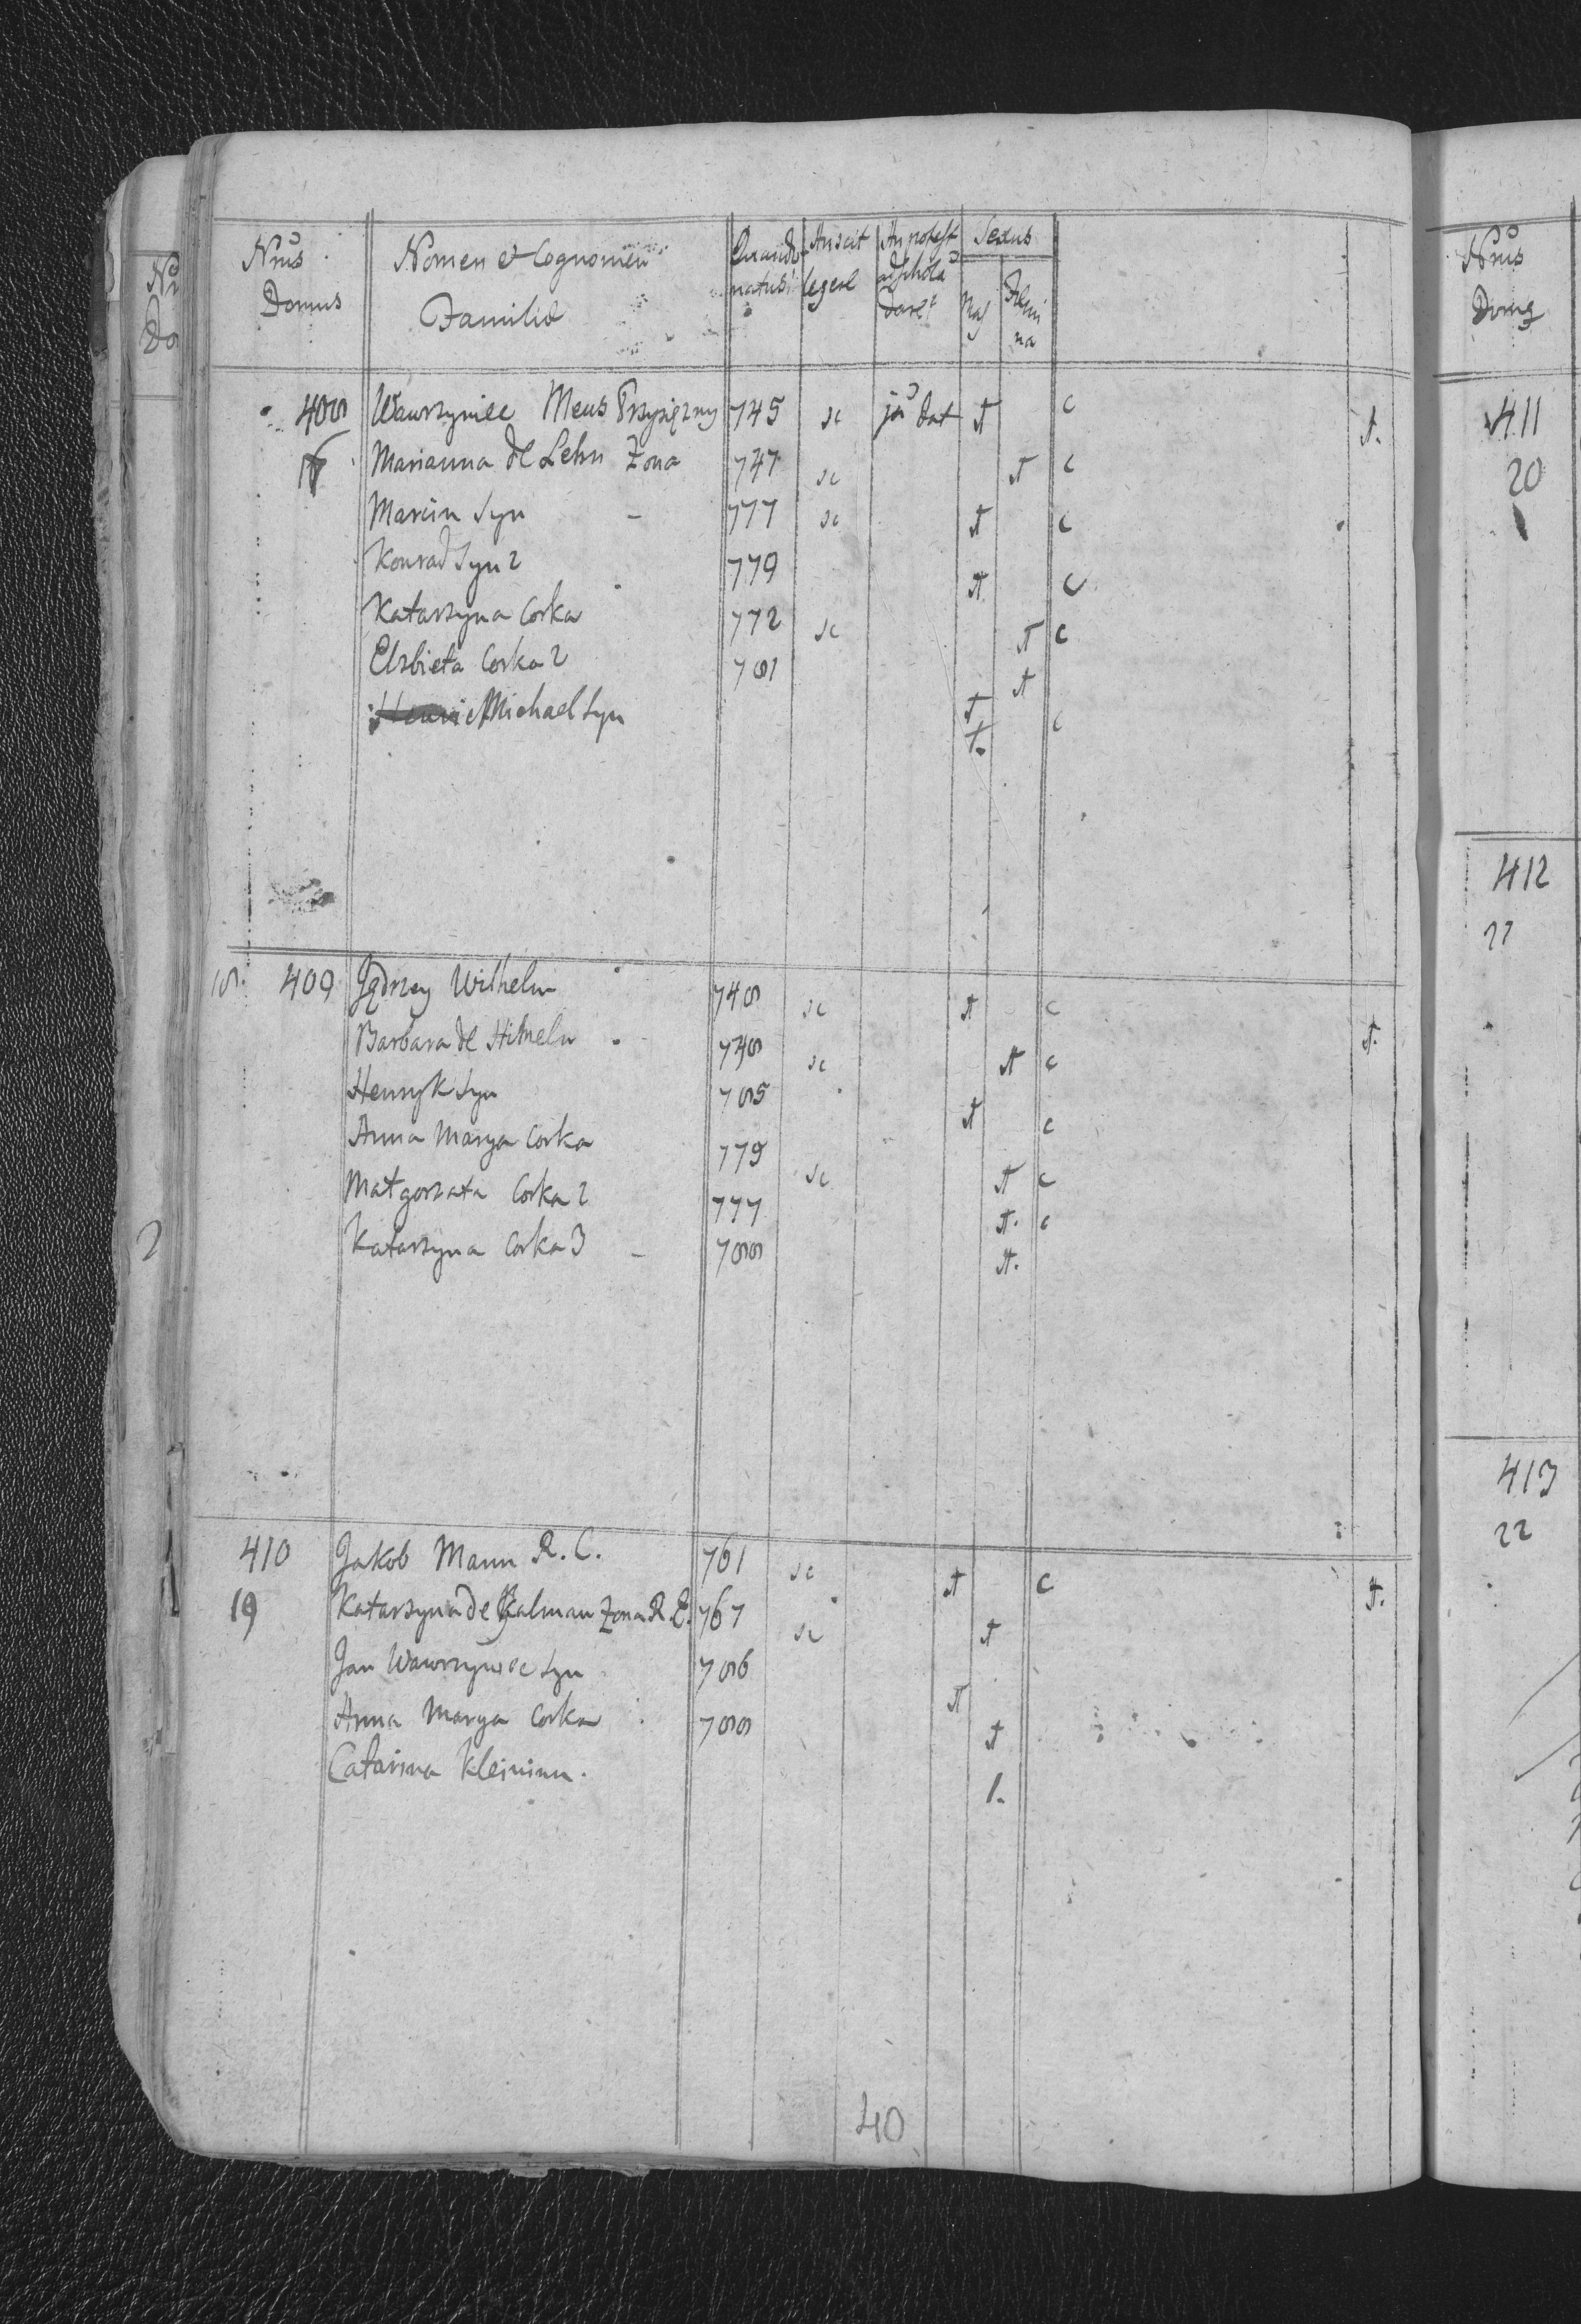 Nrus Domus
Nomen et Cognomen Familie
Quando natus
An scit legere
An potest ad schola dare
Sexus
Mas
Femina
408 Wawrzyniec Meus Przysięzny 745 sc ja dat † c †.
Marianna de Lehn Zona 747 sc † c
Marcin Syn - 777 sc † c
Konrad Syn 2 779 † c
Katarzyna Corka 772 sc † c
Elzbieta Corka 2 781 †
Michael Syn † †. c
18. 409 Jędrzey Wilhelm 748 sc † c
Barbara de Himeln 748 sc † c †.
Henryk Syn 785 † c
Anna Marya Corka 779 sc † c
Małgorzata Corka 2 777 †. c
Katarzyna Corka 3 - 788 †.
410 Jakob Mann R. C. 761 sc † c †.
19 Katarzyna de Kalman Zona R. C. 767 sc †
Jan Wawrzyniec Syn 786 †
Anna Marya Corka 788 †
Catarina Kleininn. 1.
40
Nrus Domq
411
20
412
413
22